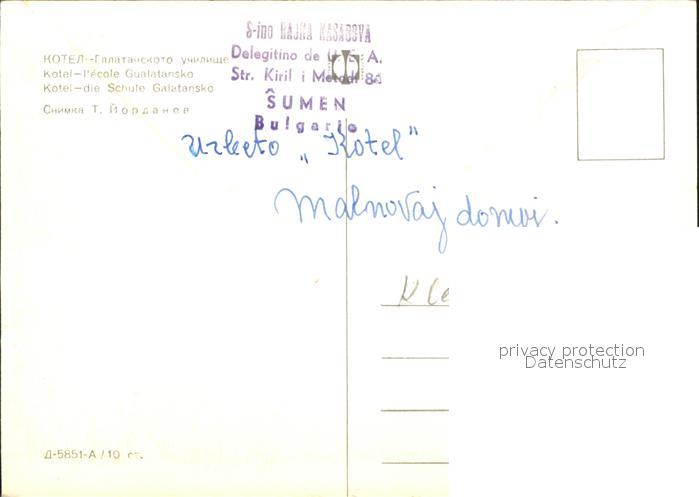 КОТЕЛ--Галатанското училище
Kotel—l'école Gualatansko
Kotel—die Schule Galatansko
Снимка Т. Йорданов
S-ino RAJNA KASABOVA
Delegitino de U. E. A.
Str. Kiril i Metodi 8
ŜUMEN
Bulgario
urbeto „Kotel"
Malnovaj domoi.
privacy protection
Datenschutz
Д-5851-А/10 ст.